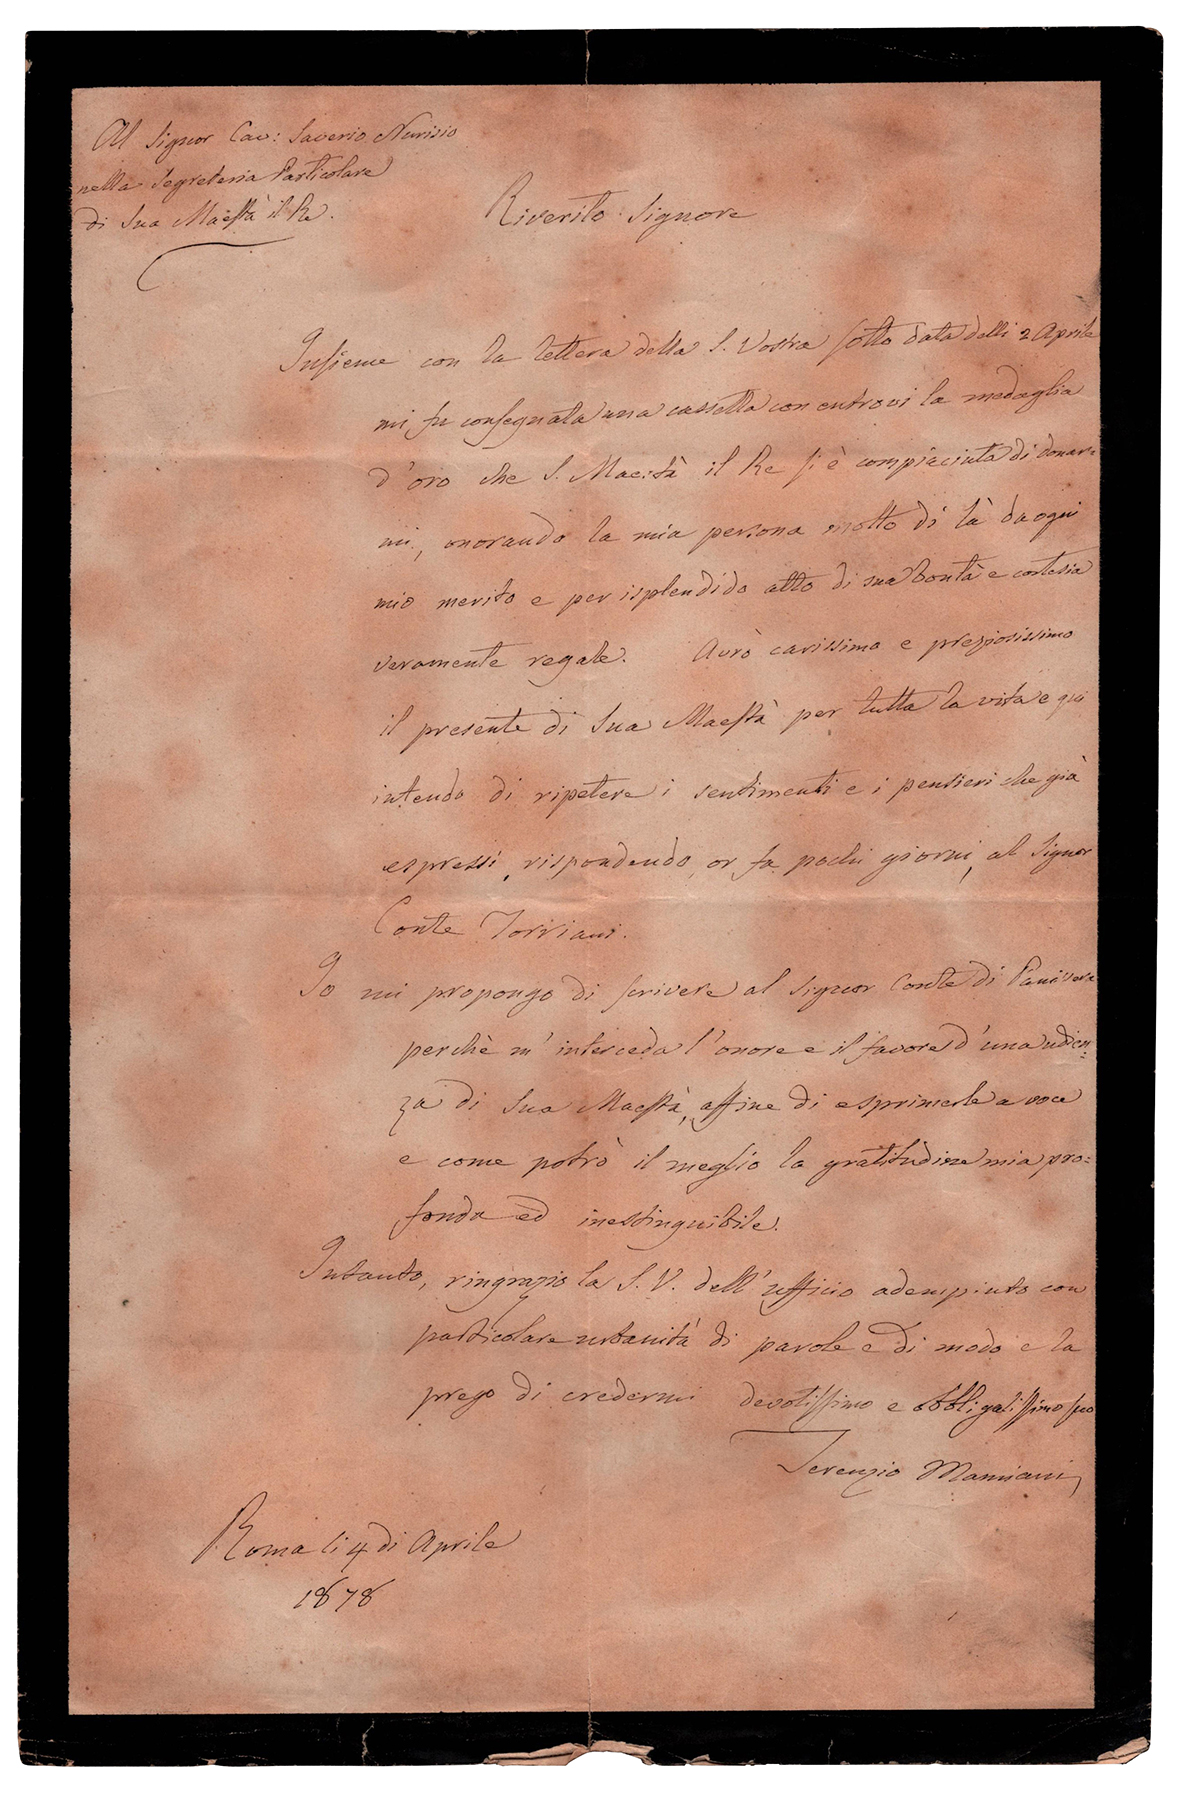 Al Signor Cav: Saverio Nurisio
nella Segreteria Particolare
di Sua Maestà il Re.
Riverito Signore
Insieme con la lettera della S. Vostra sotto data delli 2 Aprile
mi fu consegnata una cassetta con entrovi la medaglia
d'oro che S. Maestà il Re si è compiaciuta di donar=
mi, onorando la mia persona molto di là da ogni
mio merito e per isplendido atto di sua bontà e cortesia
veramente regale. Avrò carissimo e preziosissimo
il presente di Sua Maestà per tutta la vita e qui
intendo di ripetere i sentimenti e i pensieri che già
espressi, rispondendo, or fa pochi giorni, al Signor
Conte Torriani.
Io mi propongo di scrivere al Signor Conte di Panissera
perchè m'interceda l'onore e il favore d'una udien=
za di Sua Maestà, affine di esprimerle a voce
e come potrò il meglio la gratitudine mia pro=
fonda ed inestinguibile.
Intanto, ringrazio la S. V. dell'ufficio adempiuto con
particolare urbanità di parole e di modo e la
prego di credermi devotissimo e obbligatissimo suo
Terenzio Mamiani
Roma li 4 di Aprile
1878